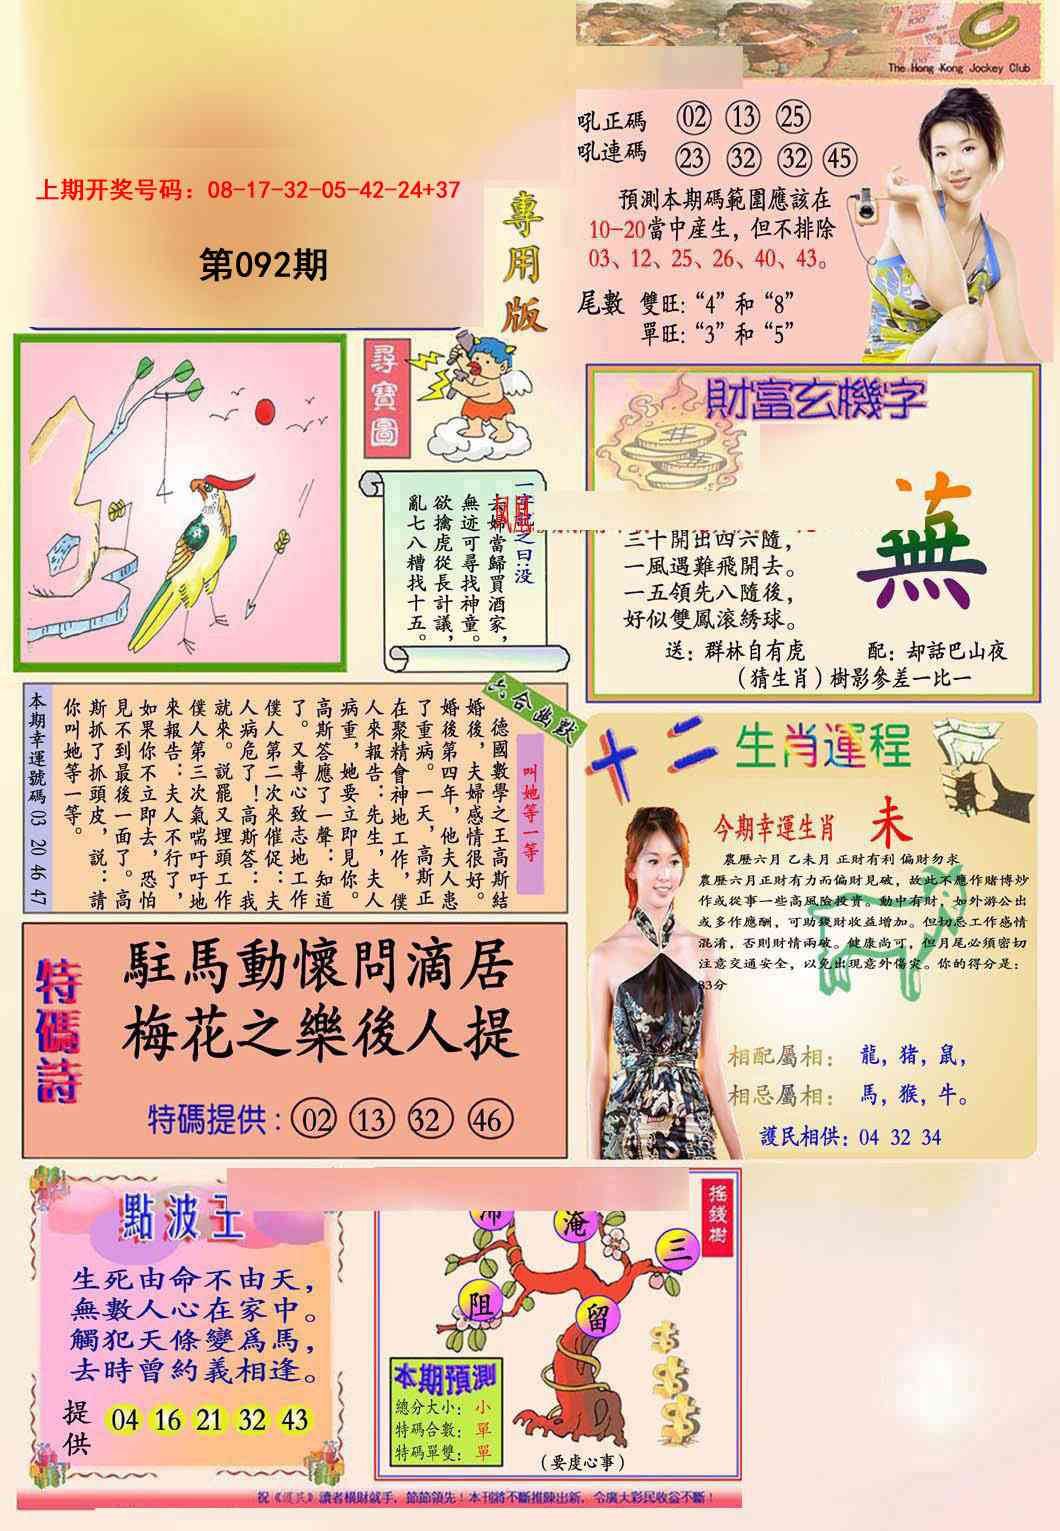 The Hong Kong Jockey Club
上期开奖号码：08-17-32-05-42-24+37
第092期
專用版
吼正碼 02 13 25
吼連碼 23 32 32 45
預測本期碼範圍應該在
10-20當中産生，但不排除
03、12、25、26、40、43。
尾數 雙旺："4"和"8"
單旺："3"和"5"
尋寶圖
一字記之曰：没
夫婦當歸買酒家，
無迹可尋找神童。
欲擒虎從長計議，
亂七八糟找十五。
財富玄機字
三十開出四六隨，
一風遇難飛開去。
一五領先八隨後，
好似雙鳳滚綉球。
送：群林自有虎
配：却話巴山夜
（猜生肖）樹影參差一比一
六合幽默
叫她等一等
德國數學之王高斯結
婚後，夫婦感情很好。
婚後第四年，他夫人患
了重病。一天，高斯正
在聚精會神地工作，僕
人來報告：先生，夫人
病重，她要立即見你。
高斯答應了一聲：知道
了。又專心致志地工作
僕人第二次來催促：夫
人病危了！高斯答：我
就來。説罷又埋頭工作
僕人第三次氣喘吁吁地
來報告：夫人不行了，
如果你不立即去，恐怕
見不到最後一面了。高
斯抓了抓頭皮，説：請
你叫她等一等。
本期幸運號碼 03 20 46 47
十二生肖運程
今期幸運生肖 未
農歷六月 乙未月 正財有利 偏財勿求
農歷六月正財有力而偏財見破，故此不應作賭博炒
作或從事一些高風險投資。動中有財，如外游公出
或多作應酬，可助發財收益增加。但切忌工作感情
混淆，否則財情兩破。健康尚可，但月尾必須密切
注意交通安全，以免出現意外傷灾。你的得分是：
83分
相配屬相：龍，猪，鼠，
相忌屬相：馬，猴，牛。
護民相供：04 32 34
特碼詩
駐馬動懷問滴居
梅花之樂後人提
特碼提供：02 13 32 46
點波王
生死由命不由天，
無數人心在家中。
觸犯天條變爲馬，
去時曾約義相逢。
提供 04 16 21 32 43
搖錢樹
淹
三
阻
留
本期預測
總分大小：小
特碼合數：單
特碼單雙：單
（要虔心事）
祝《護民》讀者横財就手，節節領先！本刊將不斷推陳出新，令廣大彩民收益不斷！